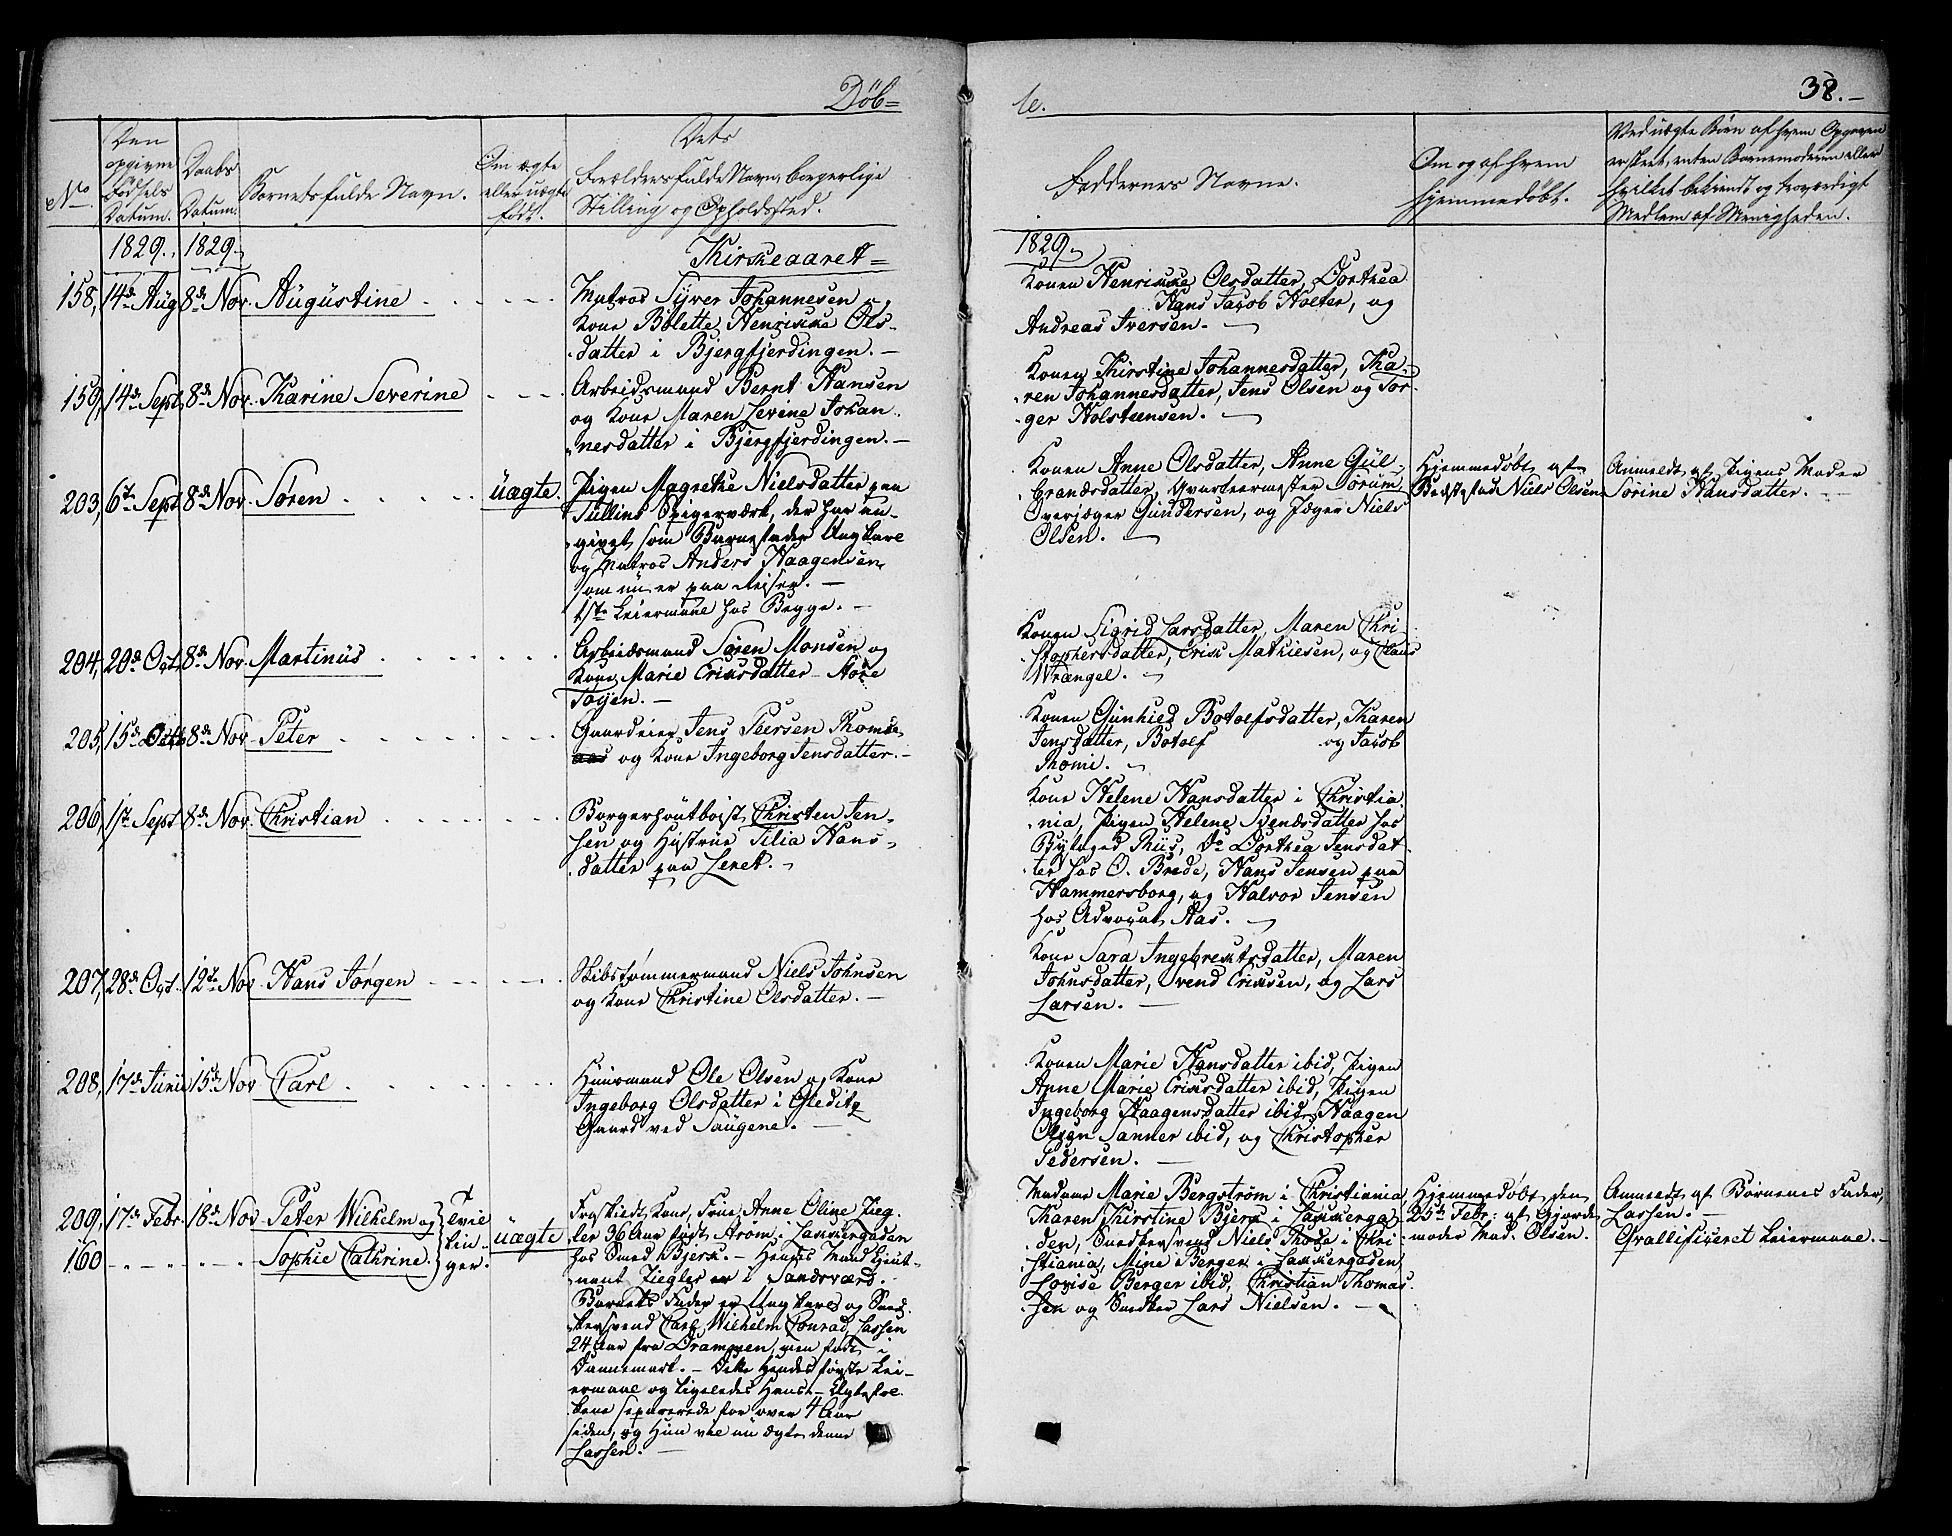 Döb=
te.
38.-
No.
Den opgivne Födsels Datum.
Daabs Datum.
Barnets fulde Navn.
Om ægte eller uægte født.
Dets Forældres fulde Navn, borgerlige Stilling og Opholdssted.
Faddernes Navne.
Om og af hvem hjemmedöbt.
Ved uægte Börn af hvem Opgaven er skeet, enten Barnemoderen eller hvilket bekiendt og troværdigt Medlem af Menigheden.
1829. 1829.
Kirkeaaret=
1829.
158, 14de Aug 8de Nov. Augustine
Matros Syver Johannesen og
Kone Bolette Henrikke Ols-
datter i Bjergfjerdingen.-
Konen Henrikke Olsdatter, Dorthea
Hans Jacob Holter, og
Andreas Iversen.-
159, 14de Sept 8de Nov. Karine Severine
Arbeidsmand Bernt Hansen
og Kone Maren Levine Johan-
nesdatter i Bjergfjerdingen.-
Konen Kirstine Johannesdatter, Ka-
ren Johannesdatter, Jens Olsen og Tor-
ger Holstensen.
203, 6te Sept 8de Nov. Sören
uægte.
Pigen Magrethe Nielsdatter paa
Tullins Spigerværk, der har an-
givet som Barnefader Ungkarl
og Matros Anders Haagensen
som nu er paa Reiser.-
1ste Leiermaal hos Begge.-
Konen Anne Olsdatter, Anne Gul-
brandsdatter, Qvarteermester Sorum,
Overjæger Gundersen, og Jæger Niels
Olsen.
Hjemmedöbt af
Bedstefad. Niels Olsen
Anmeldt af Pigens Moder
Sorine Hansdatter.
204, 20de Oct. 8de Nov. Martinus
Arbeidsmand Sören Monsen og
Kone Marie Eriksdatter
Töyen.-
Konen Sigrid Larsdatter, Maren Chri-
stophersdatter, Erik Mathiesen, og Claus
Wrangel.
205, 15de 8de Nov. Peter
Gaardeier Jens Peersen Thoms-
og Kone Ingeborg Jensdatter.-
Konen Gunhild Botolfsdatter, Karen
Jensdatter, Botolf og Jacob
Thomi.
206, 1ste Sept 8de Nov. Christian
Borgerhoutboist Christen Jen-
sen og Hustrue Silia Hans-
datter paa Leret.
Kone Helene Hansdatter i Christia-
nia, Pigen Helene Svendsdatter hos
Byfoged Riis, Do Dorthea Jensdat-
ter hos O. Brede, Hans Jensen paa
Hammersborg, og Halvor Jensen
hos Advocat Aas.
207, 28de Oct. 12te Nov. Hans Jörgen
Skibstömmermand Niels Johnsen
og Kone Christine Olsdatter.-
Kone Sara Ingebrektsdatter, Maren
Johnsdatter, Svend Eriksen, og Lars
Larsen.
208, 17de Junii 15de Nov Carl
Huusmand Ole Olsen og Kone
Ingeborg Olsdatter i Gleditz
Gaard ved Saugene.-
Konen Marie Hansdatter ibid, Pigen
Anne Marie Eriksdatter ibid, Pigen
Ingeborg Haagensdatter ibid, Haagen
Olsen Sanner ibid, og Christopher
Pedersen.
209, 17de Febr. 18de Nov Peter Wilhelm og
160 Sophie Cathrine.
Tvil-
lin-
ger.
uægte
Fraskildt Kone, Frue Anne Oline Zieg-
ler 36 Aar födt Aröm, i Lakkergaden
hos Smed Bjerk.- Hendes Mand Lieut-
nant Ziegler er i Sandsværd.
Barnets Fader er Ungkarl og Sned-
kersvend Carl Wilhelm Conrad Lassen
24 Aar fra Drammen, men födt i
Dannemark.- Dette Hendes förste Lei-
ermaal og ligeledes Hans.- Egtefol-
kene separerede for over 4 Aar
siden, og Hun vil nu ægte denne
Lassen.
Madame Marie Bergström i Christiania,
Karen Kirstine Bjerk i Lakkerga-
den, Snedkersvend Niels Thode i Chri-
stiania, Mine Berger i Lakkergaden
Lovise Berger ibid, Christian Thomas-
sen og Snedker Lars Nielsen.-
Hjemmedöbt den
25de Febr: af Gjorde-
moder Mad. Olsen.
Anmeldt af Börnenes Fader,
Lassen.-
Qvallificeret Leiermaal.-